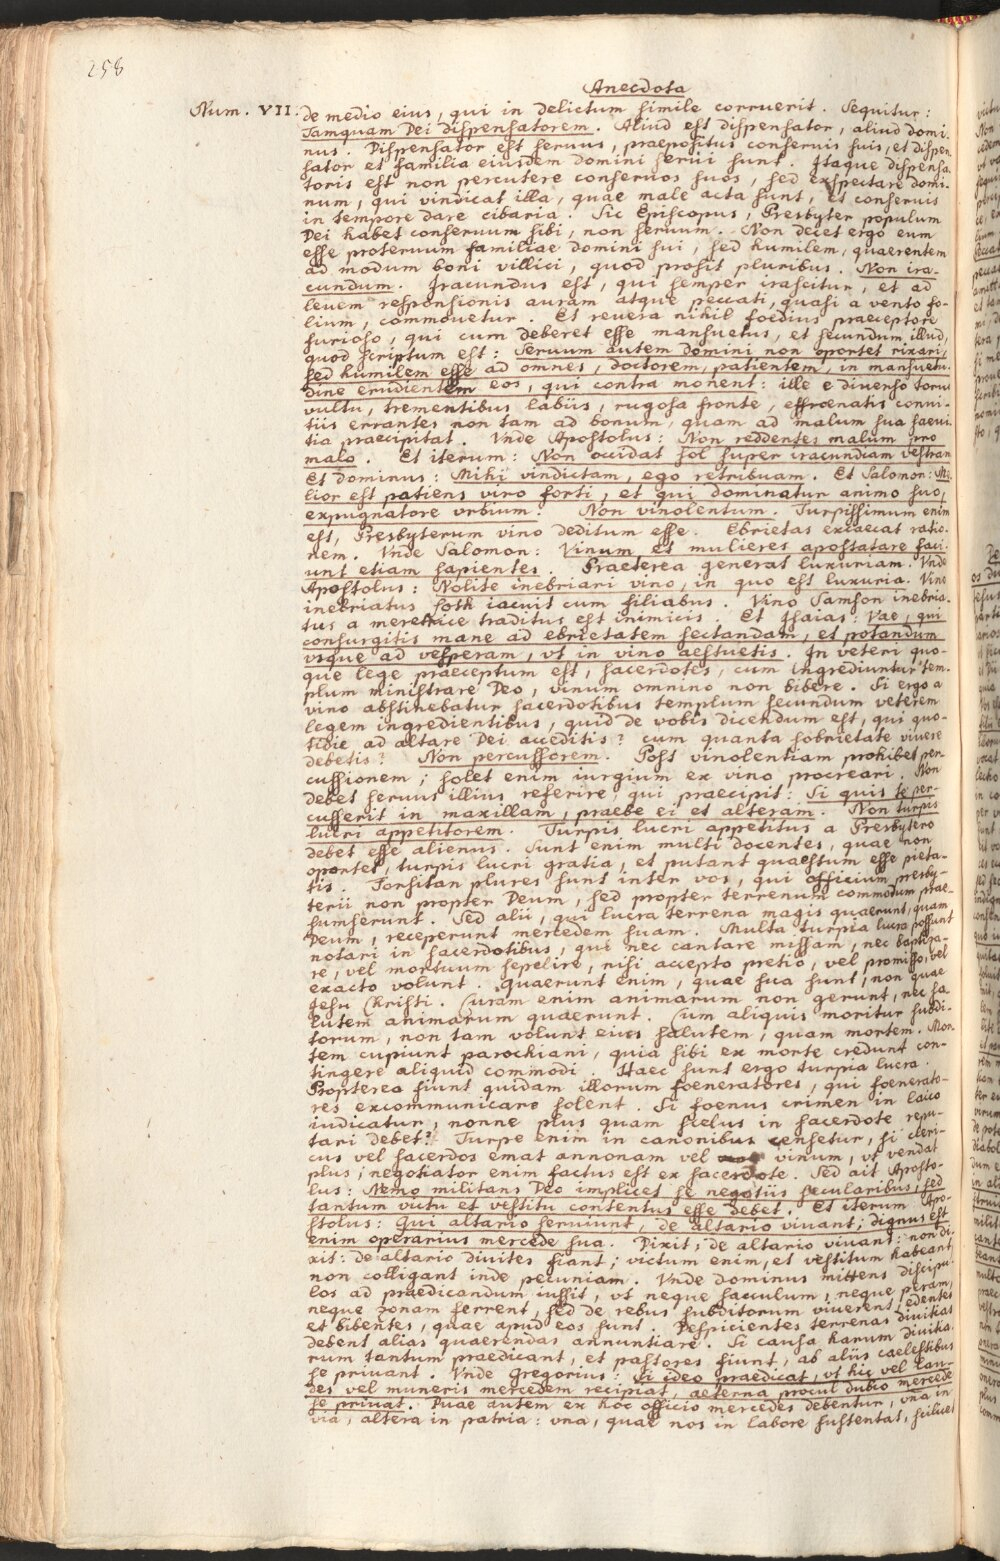 258
Anecdota
Num. VII. de medio eius, qui in delictum simile corruerit. Sequitur:
Tamquam Dei dispensatorem. Aliud est dispensator, aliud domi-
nus. Dispensator est seruus, praepositus conseruis suis, et dispen
sator et familia eiusdem domini serui sunt. Itaque dispensa
toris est non percutere conseruos suos, sed exspectare domi-
num, qui vindicat illa, quae male acta sunt, et conseruis
in tempore dare cibaria. Sic Episcopus, Presbyter populum
Dei habet conseruum sibi, non seruum. Non decet ergo eum
esse proteruum familiae domini sui, sed humilem, quaerentem
ad modum boni villici, quod prosit pluribus. Non ira-
cundum. Iracundus est, qui semper irascitur, et ad
leuem responsionis auram atque peccati, quasi a vento fo-
lium, commouetur. Et reuera nihil foedius praeceptore
furioso, qui cum deberet esse mansuetus, et secundum illud,
quod scriptum est: Seruum autem domini non oportet rixari,
sed humilem esse ad omnes, doctorem, patientem, in mansuetu-
dine erudientem eos, qui contra monent: ille e diuerso toruo
vultu, trementibus labiis, rugosa fronte, effroenatis conui-
tiis errantes non tam ad bonum, quam ad malum sua saeui-
tia praecipitat. Vnde Apostolus: Non reddentes malum pro
malo. Et iterum: Non occidat sol super iracundiam vestram
Et dominus: Mihi vindictam, ego retribuam. Et Salomon: Me-
lior est patiens viro forti, et qui dominatur animo suo,
expugnatore vrbium. Non vinolentum. Turpissimum enim
est, Presbyterum vino deditum esse. Ebrietas excaecat ratio-
nem. Vnde Salomon: Vinum et mulieres apostatare faci-
unt etiam sapientes. Praeterea generat luxuriam. Vnde
Apostolus: Nolite inebriari vino, in quo est luxuria. Vino
inebriatus Loth iacuit cum filiabus. Vino Samson inebria-
tus a meretrice traditus est inimicis. Et Isaias: Vae, qui
consurgitis mane ad ebrietatem sectandam, et potandum
vsque ad vesperam, vt in vino aestuetis. In veteri quo-
que lege praeceptum est, sacerdotes, cum ingrediuntur tem-
plum ministrare Deo, vinum omnino non bibere. Si ergo a
vino abstinebatur sacerdotibus templum secundum veterem
legem ingredientibus, quid de vobis dicendum est, qui quo-
tidie ad altare Dei acceditis? cum quanta sobrietate viuere
debetis? Non percussorem. Post vinolentiam prohibet per-
cussionem; solet enim iurgium ex vino procreari. Non
debet seruus illius referire, qui praecipit: Si quis te per-
cusserit in maxillam, praebe ei et alteram. Non turpis
lucri appetitorem. Turpis lucri appetitus a Presbytero
debet esse alienus. Sunt enim multi docentes, quae non
oportet, turpis lucri gratia, et putant quaestum esse pieta-
tis. Forsitan plures sunt inter vos, qui officium presby-
terii non propter Deum, sed propter terrenum commodum prae-
sumserunt. Sed alii, qui lucra terrena magis quaerunt, quam
Deum, receperunt mercedem suam. Multa turpia lucra possunt
notari in sacerdotibus, qui nec cantare missam, nec baptiza-
re, vel mortuum sepelire, nisi accepto pretio, vel promisso, vel
exacto volunt. Quaerunt enim, quae sua sunt, non quae
Jesu Christi. Curam enim animarum non gerunt, nec sa-
lutem animarum quaerunt. Cum aliquis moritur subdi-
torum, non tam volunt eius salutem, quam mortem. Mor-
tem cupiunt parochiani, quia sibi ex morte credunt con-
tingere aliquid commodi. Haec sunt ergo turpia lucra.
Propterea fiunt quidam illorum foeneratores, qui foenerato-
res excommunicare solent. Si foenus crimen in laico
iudicatur, nonne plus quam scelus in sacerdote repu-
tari debet? Turpe enim in canonibus censetur, si cleri-
cus vel sacerdos emat annonam vel vinum, vt vendat
plus; negotiator enim factus est ex sacerdote. Sed ait Aposto-
lus: Nemo militans Deo implicet se negotiis secularibus, sed
tantum victu et vestitu contentus esse debet. Et iterum Apo-
stolus: Qui altario seruiunt, de altario viuant; dignus est
enim operarius mercede sua. Dixit; de altario viuant: non di-
xit: de altario diuites fiant; victum enim, et vestitum habeant,
non colligant inde pecuniam. Vnde dominus mittens discipu-
los ad praedicandum iussit, vt neque sacculum, neque peram,
neque zonam ferrent, sed de rebus subditorum viuerent, edentes
et bibentes, quae apud eos sunt. Despicientes terrenas diuitias
debent alias quaerendas annuntiare. Si causa harum diuitia-
rum tantum praedicant, et pastores fiunt, ab aliis caelestibus
se priuant. Vnde Gregorius: Si ideo praedicat, vt hic vel lau-
des vel muneris mercedem recipiat, aeterna procul dubio mercede
se priuat. Duae autem ex hoc officio mercedes debentur, vna in
via, altera in patria: vna, quae nos in labore sustentat, scilicet